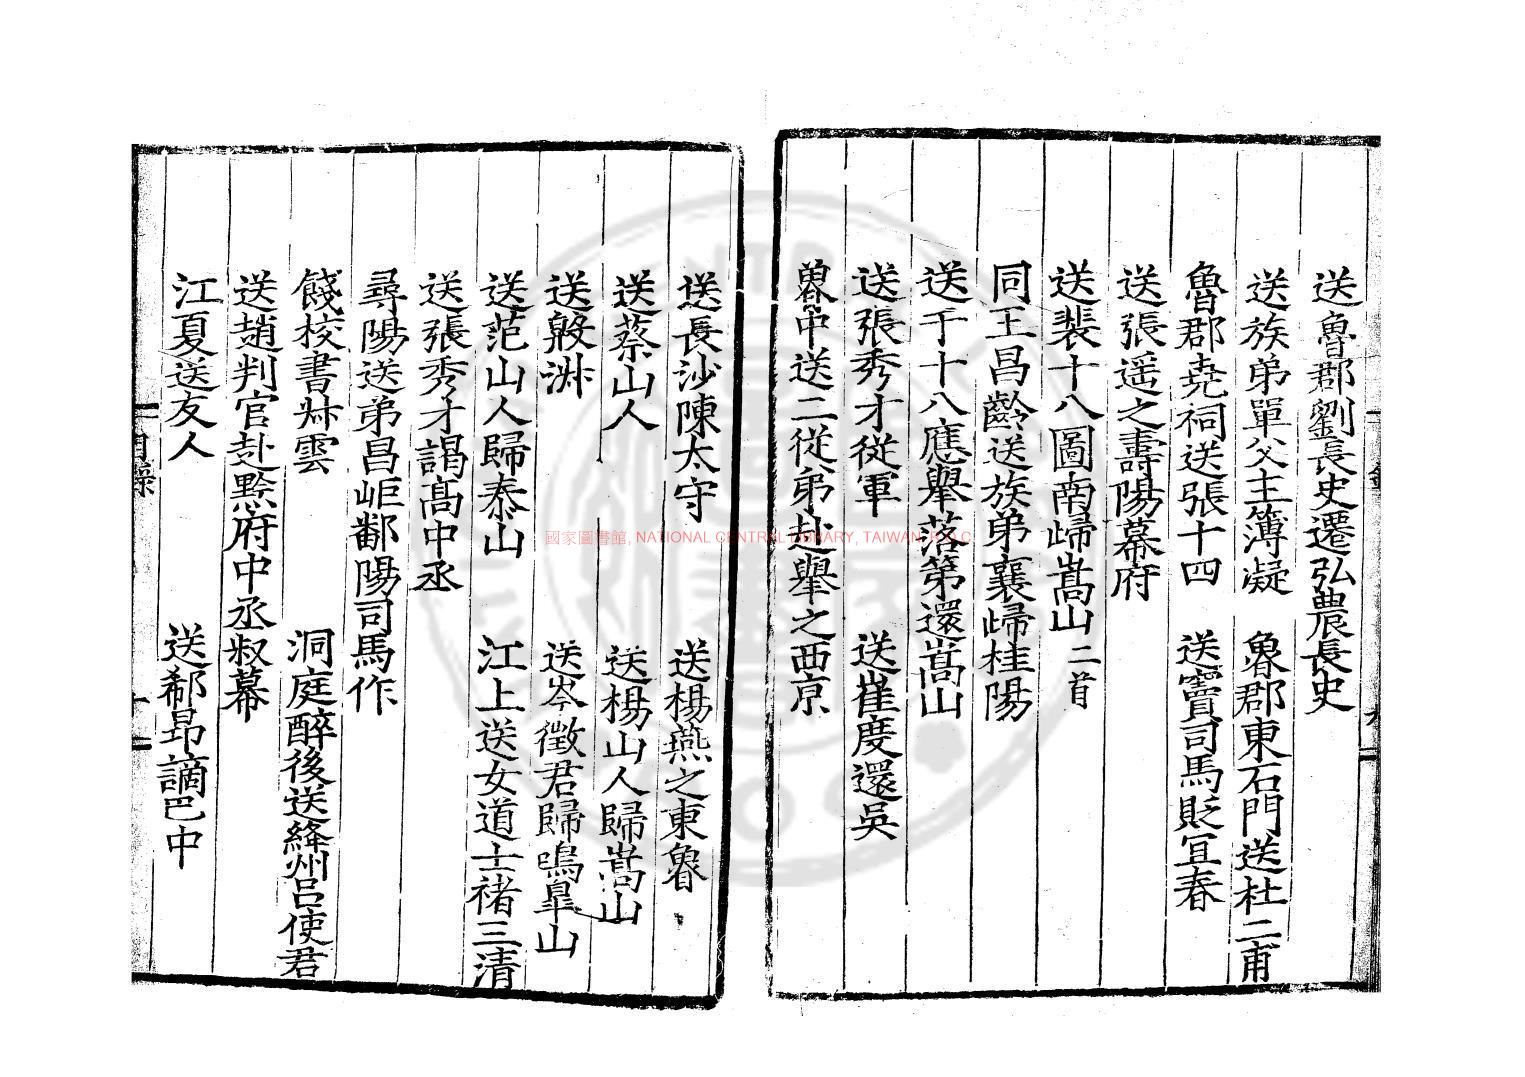 送魯郡劉長史遷弘農長史
送族弟單父主簿凝　魯郡東石門送杜二甫
魯郡堯祠送張十四　送竇司馬貶宜春
送張遥之壽陽幕府
送裴十八圖南歸嵩山二首
同王昌齡送族弟襄歸桂陽
送于十八應舉落第還嵩山
送張秀才從軍　送崔度還吳
魯中送二從弟赴舉之西京
送長沙陳太守　送楊燕之東魯
送蔡山人　送楊山人歸嵩山
送殷淑　送岑徵君歸鳴皐山
送范山人歸泰山　江上送女道士褚三清
送張秀才謁高中丞
尋陽送弟昌岠鄱陽司馬作
餞校書叔雲　洞庭醉後送絳州呂使君
送趙判官赴黔府中丞叔幕
江夏送友人　送郄昂謫巴中
目錄
國家圖書館, NATIONAL CENTRAL LIBRARY, TAIWAN, R.O.C